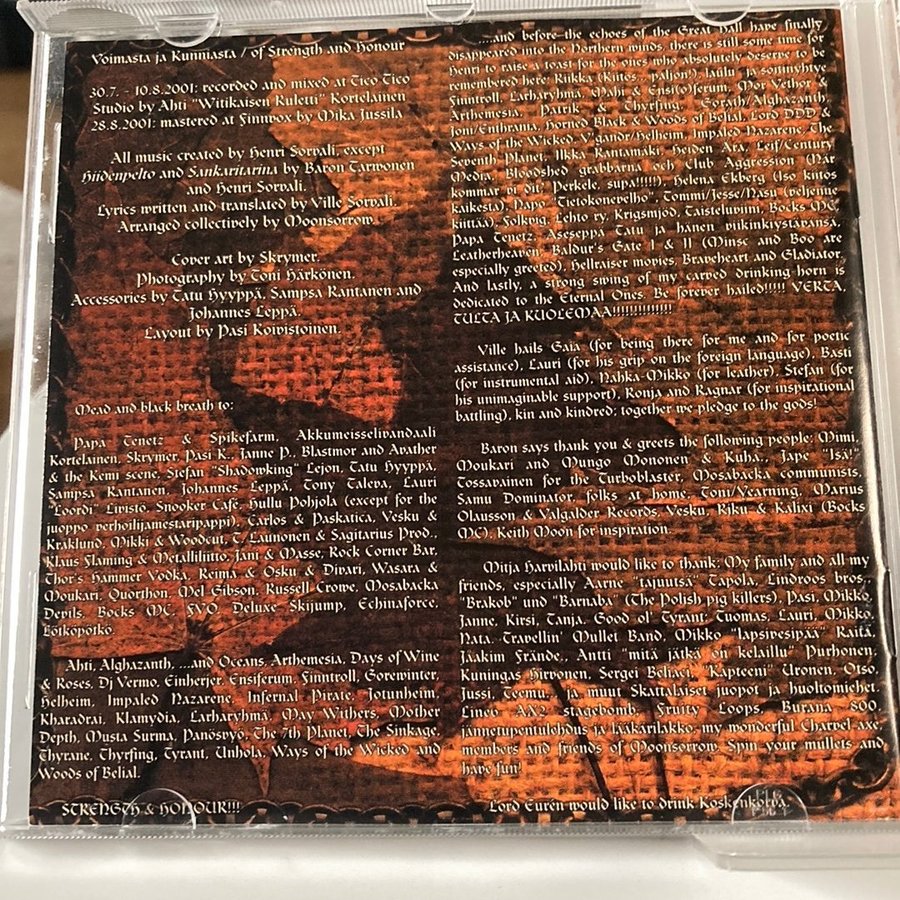 Voimasta ja Kunniasta / of Strength and Honour
30.7. - 10.8.2001: recorded and mixed at Tico Tico
Studio by Ahti "Witikaisen Ruletti" Kortelainen
28.8.2001: mastered at Finnvox by Mika Jussila
All music created by Henri Sorvali, except
Hiidenpelto and Sankaritarina by Baron Tarwonen
and Henri Sorvali.
Lyrics written and translated by Ville Sorvali.
Arranged collectively by Moonsorrow.
Cover art by Skrymer.
Photography by Toni Härkönen.
Accessories by Tatu Hyyppä, Sampsa Rantanen and
Johannes Leppä.
Layout by Pasi Koivistoinen.
Mead and black breath to:
Papa Tenetz & Spikefarm, Akkumeisselivandaali
Kortelainen, Skrymer, Pasi K., Janne P., Blastmor and Avather
& the Kemi scene, Stefan "Shadowking" Lejon, Tatu Hyyppä,
Sampsa Rantanen, Johannes Leppä, Tony Taleva, Lauri
"Loordi" Livistö Snooker Café, Hullu Pohjola (except for the
juoppo perhoilijamestaripappi), Carlos & Paskatica, Vesku &
Kraklund, Mikki & Woodcut, T. Launonen & Sagitarius Prod.,
Klaus Flaming & Metalliliitto, Jani & Masse, Rock Corner Bar,
Thor's Hammer Vodka, Reima & Osku & Divari, Wasara &
Moukari, Quorthon, Mel Gibson, Russell Crowe, Mosabacka
Devils, Bocks MC, FVO Deluxe Skijump, Echinaforce,
Lötköpötkö.
Ahti, Alghazanth, ...and Oceans, Arthemesia, Days of Wine
& Roses, Dj Vermo, Einherjer, Ensiferum, Finntroll, Gorewinter,
Helheim, Impaled Nazarene, Infernal Pirate, Jotunheim,
Kharadrai, Klamydia, Larharyhmä, May Withers, Mother
Depth, Musta Surma, Panöspyö, The 7th Planet, The Sinkage,
Thyrane, Thyrfing, Tyrant, Unhola, Ways of the Wicked and
Woods of Belial.
STRENGTH & HONOUR!!!
....and before the echoes of the Great Hall have finally
disappeared into the Northern winds, there is still some time for
Henri to raise a toast for the ones who absolutely deserve to be
remembered here: Riikka (Kiitos... paljon!), laulu- ja soittoyhtye
Finntroll, Larharyhmä, Mahi & Ensi(o)ferum, Mor Vethor &
Arthemesia, Patrik & Thyrfing, Gorath/Alghazanth,
Joni/Enthrama, Horned Black & Woods of Belial, Lord DDD &
Ways of the Wicked, V'gandr/Helheim, Impaled Nazarene, The
Seventh Planet, Ilkka Rantamäki, Heiden Ara, Leif/Century
Media, Bloodshed grabbarna och Club Aggression (När
kommar vi dit? Perkele, supa!!!!!!), Helena Ekberg (Iso kiitos
kaikesta), Papo "Tietokonevelho", Tommi/Jesse/Nasu (veljenne
kiittää), Folkvig, Lehto ry, Krigsmjöd, Taisteluviini, Bocks MC,
Papa Tenetz, Aseseppä Tatu ja hänen viikinkiystävänsä,
Leatherheaven, Baldur's Gate I & II (Minsc and Boo are
especially greeted), Hellraiser movies, Braveheart and Gladiator.
And lastly, a strong swing of my carved drinking horn is
dedicated to the Eternal Ones. Be forever hailed!!!!! VERTA,
TULTA JA KUOLEMAA!!!!!!!!!!!!!!!
Ville hails Gaia (for being there for me and for poetic
assistance), Lauri (for his grip on the foreign language), Basti
(for instrumental aid), Nahka-Mikko (for leather), Stefan (for
his unimaginable support), Ronja and Ragnar (for inspirational
battling), kin and kindred: together we pledge to the gods!
Baron says thank you & greets the following people: Mimi,
Moukari and Mungo Mononen & Kuha., Jape "Isä!"
Tossavainen for the Turboblaster, Mosabacka communists,
Samu Dominator, folks at home, Toni/Yearning, Marius
Olausson & Valgalder Records, Vesku, Riku & Kalixi (Bocks
MC), Keith Moon for inspiration.
Mitja Harvilahti would like to thank: My family and all my
friends, especially Aarne "tajuutsä" Tapola, Lindroos bros.,
"Brakob" und "Barnaba" (The Polish pig killers), Pasi, Mikko,
Janne, Kirsi, Tanja, Good ol' Tyrant Tuomas, Lauri, Mikko,
Nata, Travellin' Mullet Band, Mikko "lapsivesipää" Raita,
Jaakim Frände., Antti "mitä jätkä on kelaillu" Purhonen,
Kuningas Hirvonen, Sergei Beliaev, "Kapteeni" Uronen, Otso,
Jussi, Teemu, ja muut Skattalaiset juopot ja huoltomiehet.
Line6 AX2 stagebomb, Fruity Loops, Burana 800,
jännetupentulehdus ja Lääkärilakko, my wonderful Charvel-axe,
members and friends of Moonsorrow. Spin your mullets and
have fun!
Lord Eurén would like to drink Koskenkorva.